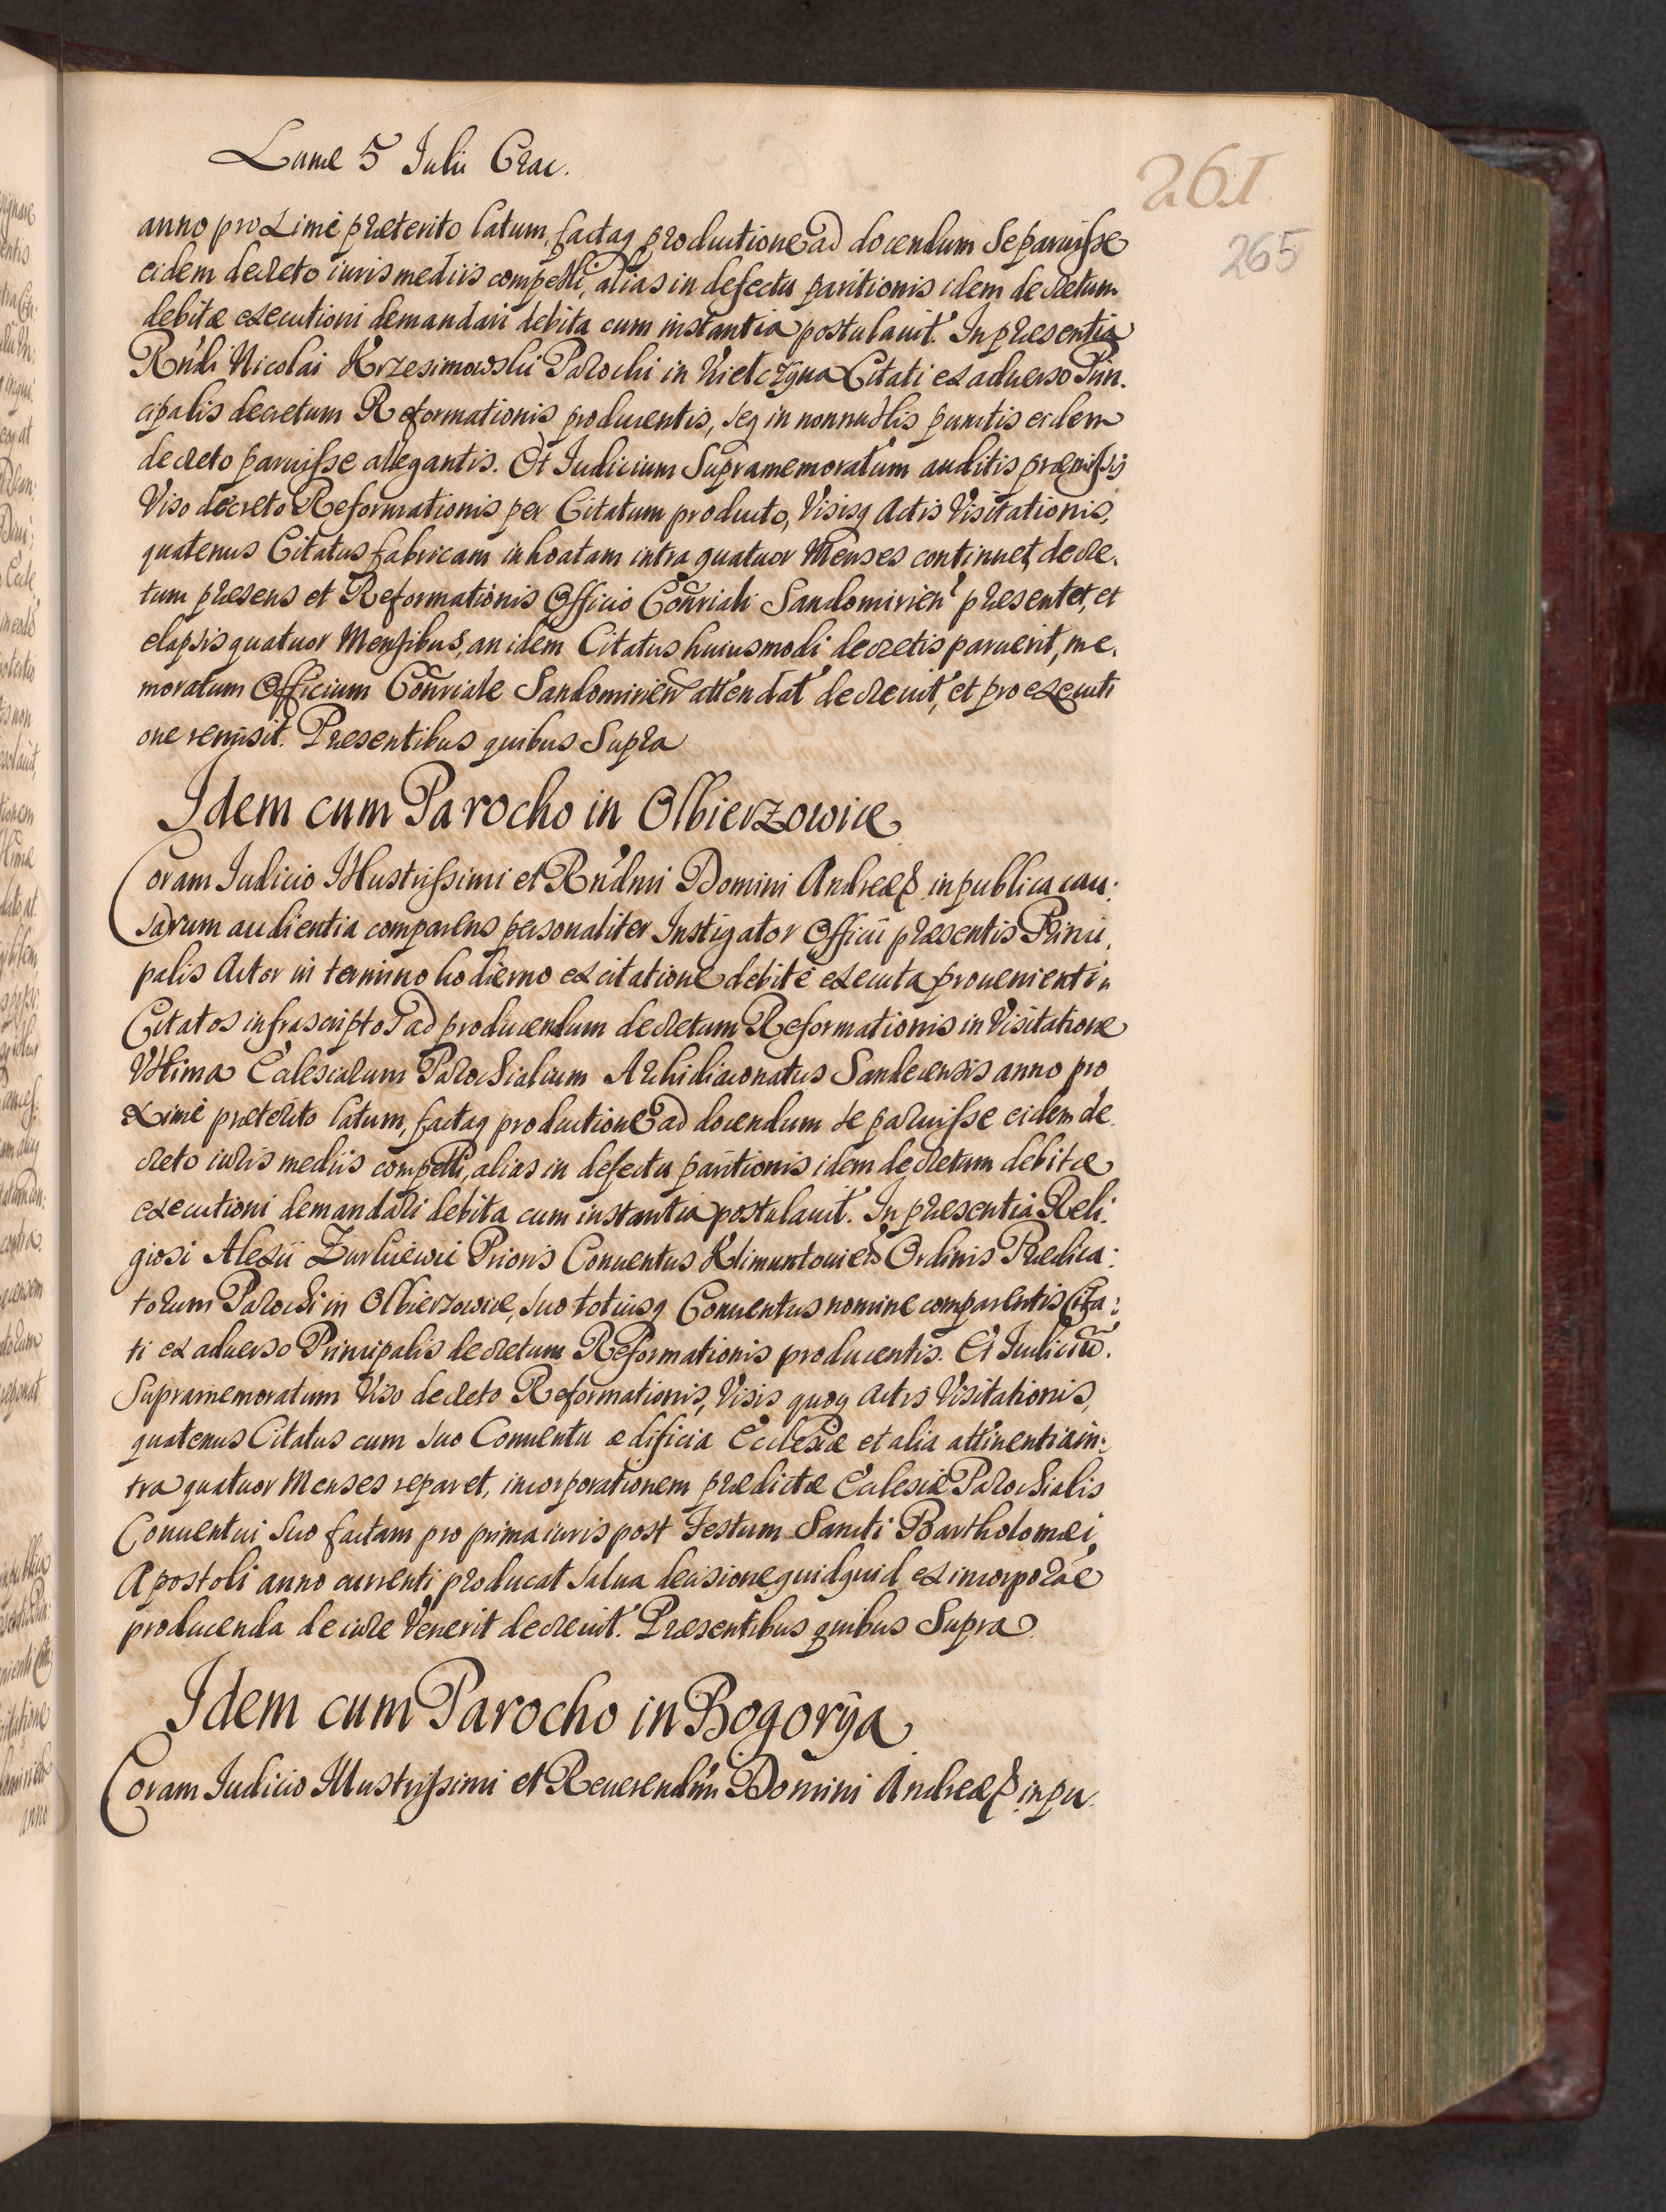 Lunæ 5 Iulii Crac.
261
265
anno proximè præterito latum, factaq productione ad docendum Se paruisse
eidem decreto iuris mediis compelli, alias in defectu paritionis idem decretum
debitæ executioni demandari debita cum instantia postulauit. In præsentia
Rńdi Nicolai Krzesimowski Parochi in Kielczyna Citati ex aduerso Prin.
cipalis decretum Reformationis producentis, seq in nonnullis punctis eidem
decreto paruisse allegantis. Et Iudicium Supramemoratum auditis præmissis
Viso decreto Reformationis per Citatum producto, Visisq Actis Visitationis,
quatenus Citatus fabricam inhoatam intra quatuor Menses continuet, decre.
tum præsens et Reformationis Officio Cońriali Sandomirień præsentet, et
elapsis quatuor Mensibus, an idem Citatus huiusmodi decretis paruerit, me.
moratum Officium Cońriale Sandomirień attendat decreuit, et pro executi
one remisit. Præsentibus quibus Supra
Idem cum Parocho in Olbierzowice
Coram Iudicio Illustrissimi et Rńdmi Domini Andreæ & in publica cau:
sarum audientia comparens personaliter Instigator Officii præsentis Princi,
palis Actor in termino hodierno ex citatione debitè executa proueniente in
Citatos infrascriptos ad producendum decretum Reformationis in Visitatione
Vltima Ecclesiarum Parochialium Archidiaconatus Sandecensis anno pro
ximè præterito latum, factaq productione ad docendum se paruisse eidem de
creto iuris mediis compelli, alias in defectu paritionis idem decretum debitæ
executioni demandari debita cum instantia postulauit. In præsentia Reli.
giosi Alexii Zurkiewic Prioris Conuentus Klimuntouień Ordinis Prædica:
torum Parochi in Olbierzowice, suo totiusq Conuentus nomine comparentis Cita:
ti ex aduerso Principalis decretum Reformationis producentis. Et Iudiciū.
Supramemoratum Viso decreto Reformationis, Visis quoq Actis Visitationis,
quatenus Citatus cum suo Conuentu ædificia Ecclesiæ et alia attinentia in:
tra quatuor Menses reparet, incorporationem prædictæ Ecclesiæ Parochialis
Conuentui suo factam pro prima iuris post Festum Sancti Bartholomæi
Apostoli anno currenti producat salua decisione, quidquid ex incorpor̃ae
producenda de iure Venerit decreuit. Præsentibus quibus Supra
Idem cum Parocho in Bogorÿa
Coram Iudicio Illustrissimi et Reuerendm̃i Domini Andreæ & in pu